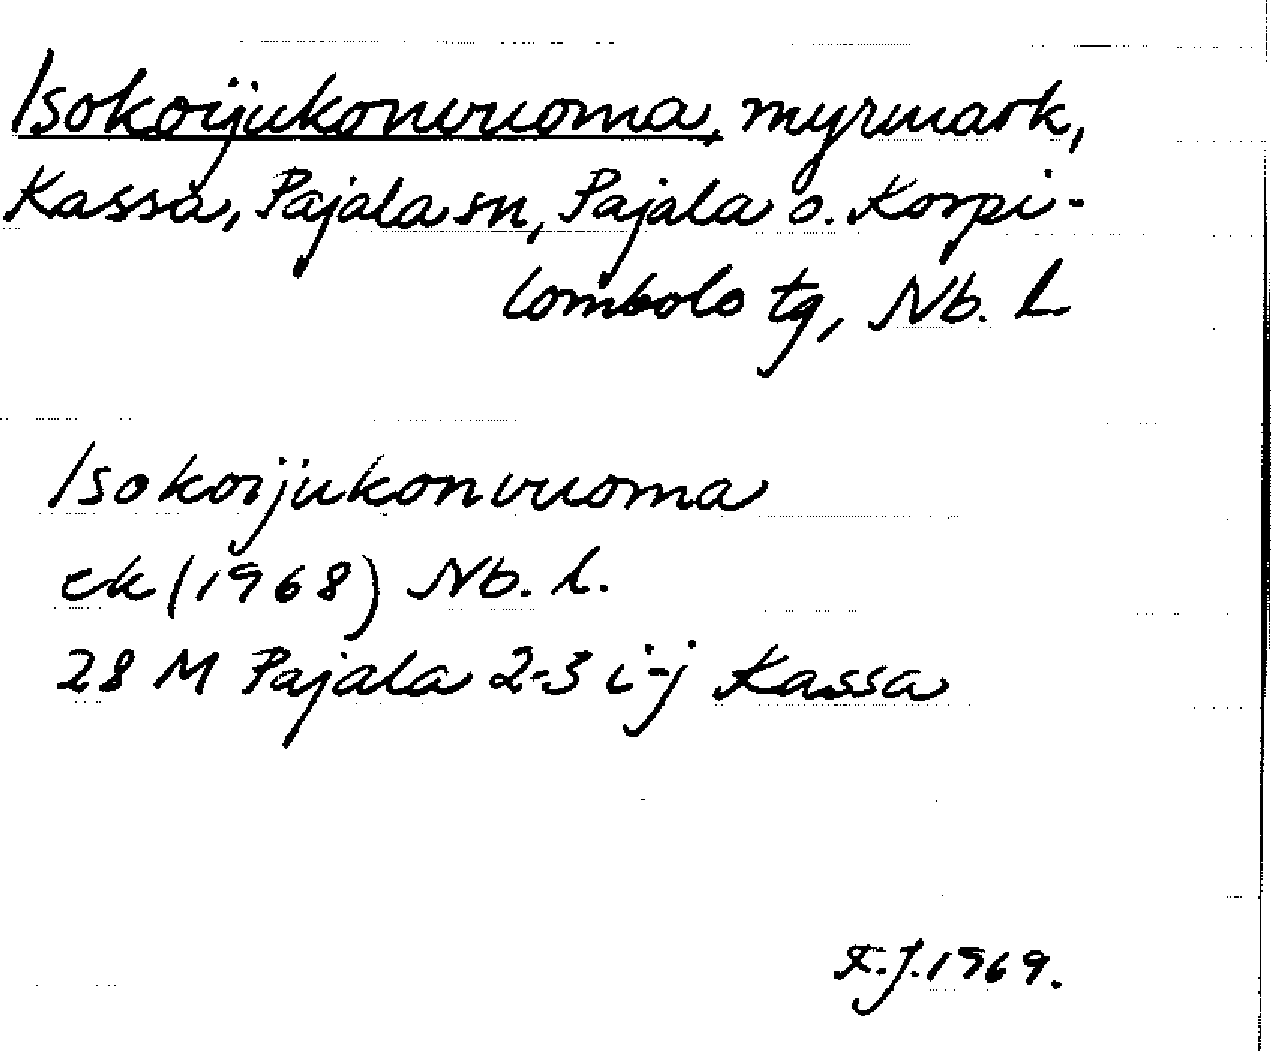 Isokoijukonvuoma, myrmark,
Kassa, Pajala sn, Pajala o. Korpi-
lombolo tg, Nb. L
Isokoijukonvuoma
ek (1968) Nb. l.
28 M Pajala 2-3 i-j Kassa
F.J. 1969.